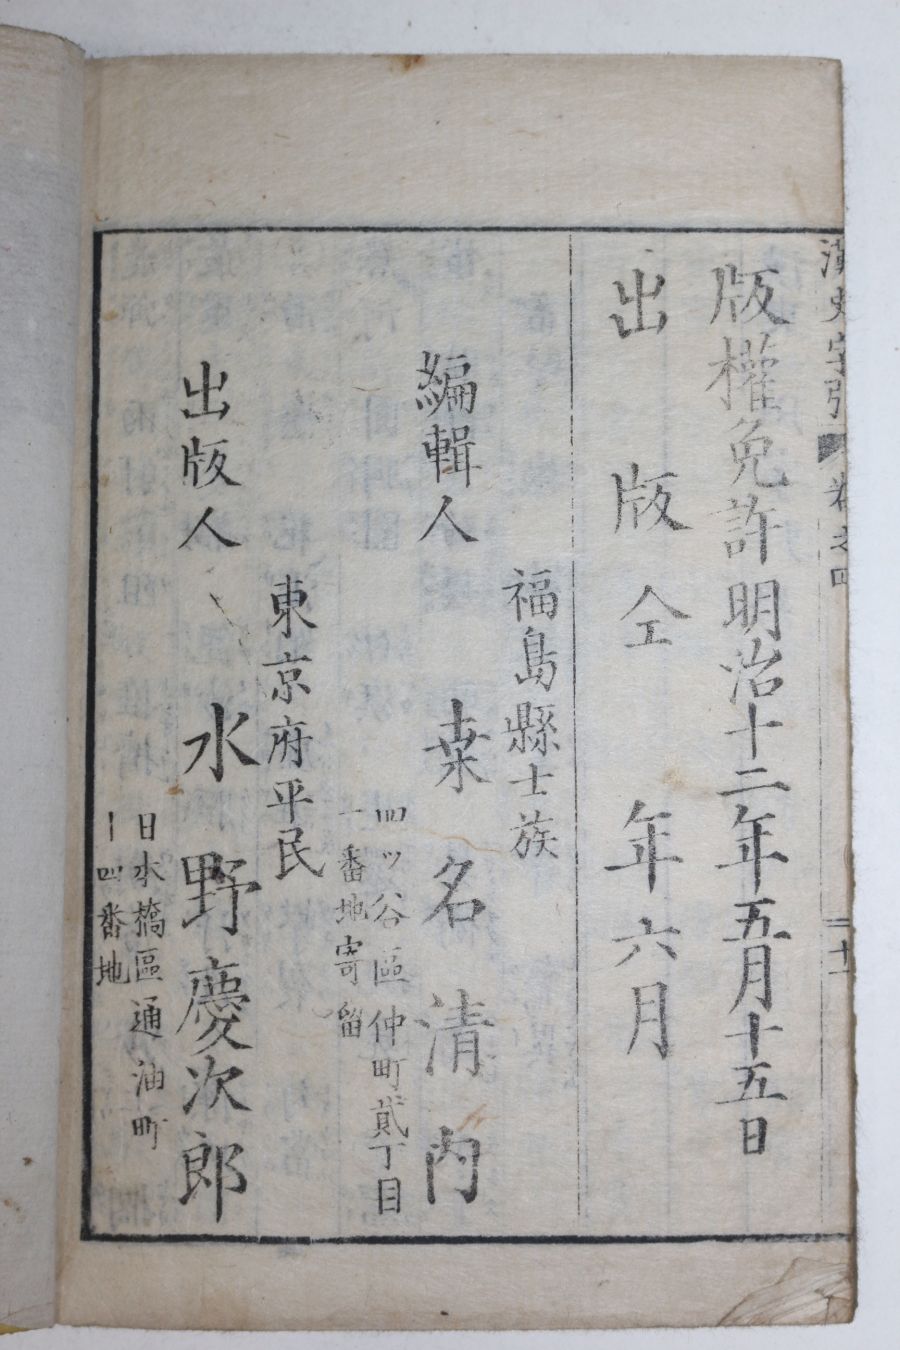 漢史字引 卷之四 十一
版權免許明治十二年五月十五日
出版仝年六月
福島縣士族
編輯人 桒名清内
四ッ谷區仲町貳丁目
一番地寄留
東京府平民
出版人 水野慶次郎
日本橋區通油町
十四番地